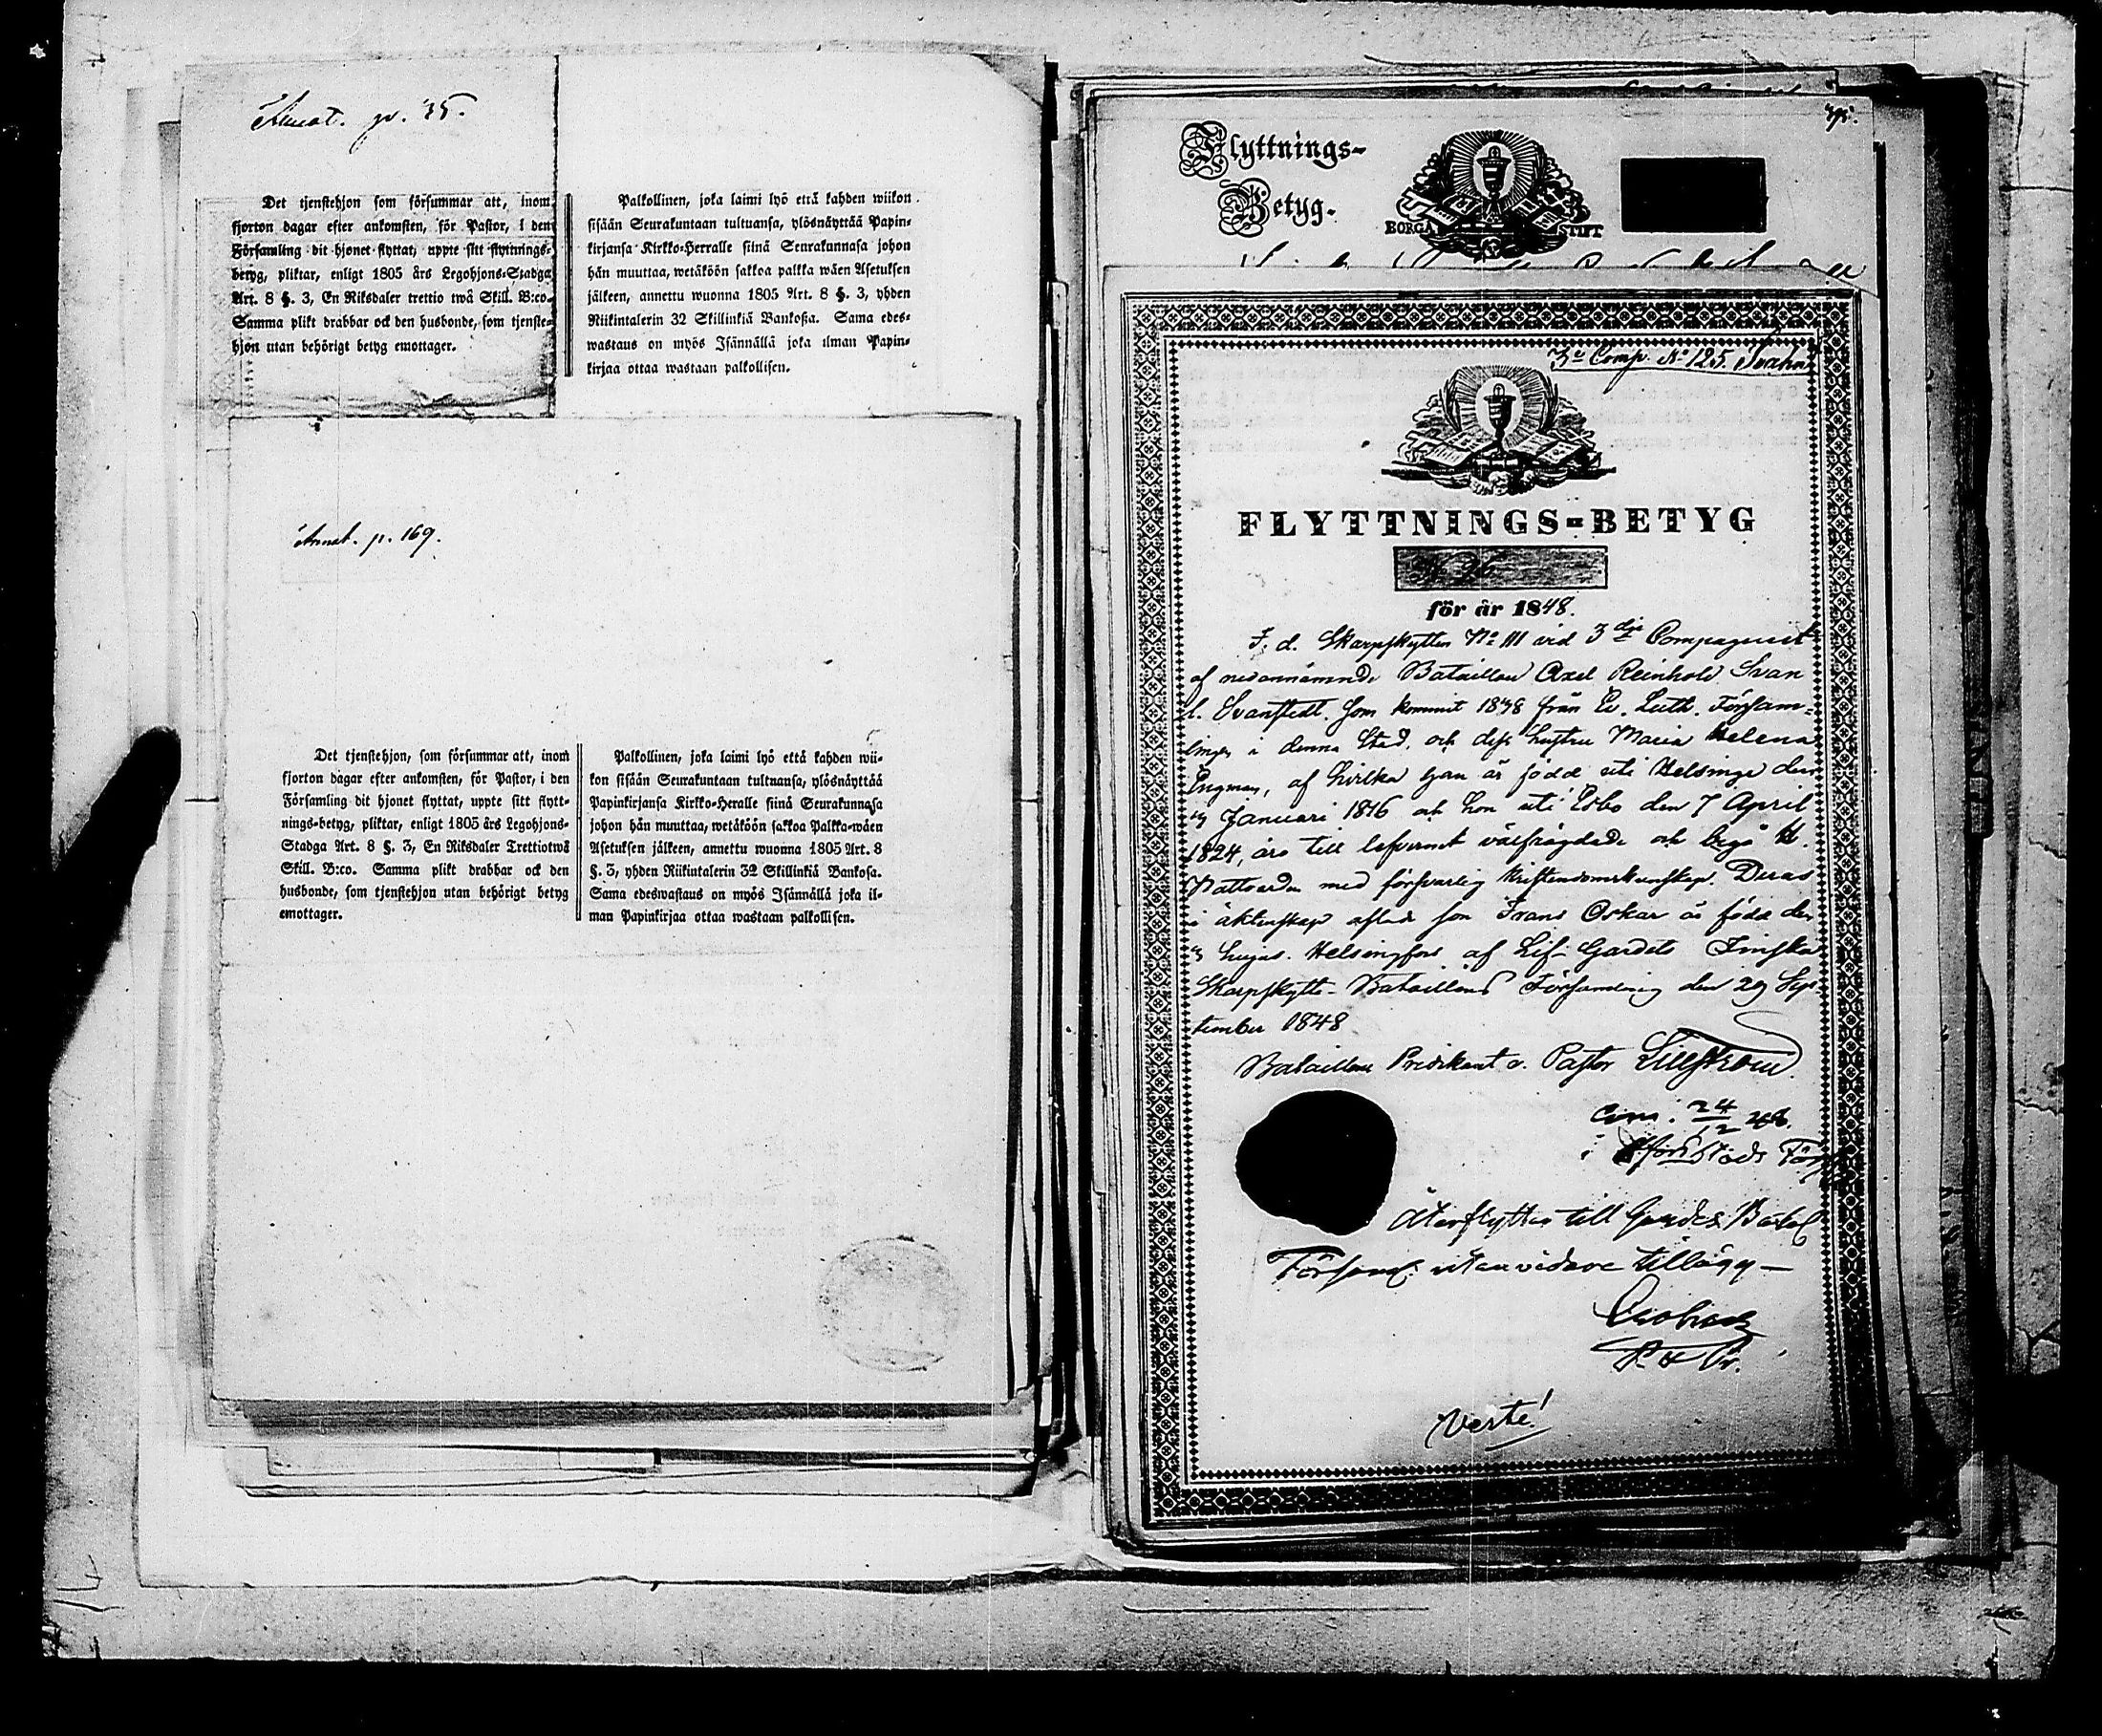 Annot. p. 35.
Det tjenstehjon som försummar att, inom
fjorton dagar efter ankomsten, för Pastor, i den
Församling dit hjonet flyttat, uppte sitt flyttnings-
betyg, pliktar, enligt 1805 års Legohjons-Stadga
Art. 8 §. 3, En Riksdaler trettio twå Skill. B:co.
Samma plikt drabbar ock den husbonde, som tjenste-
hjon utan behörigt betyg emottager.
Palkollinen, joka laimi lyö että kahden wiikon
sisään Seurakuntaan tultuansa, ylösnäyttää Papin-
kirjansa Kirkko-Herralle siinä Seurakunnasa johon
hän muuttaa, wetäköön sakkoa palkka wäen Asetuksen
jälkeen, annettu wuonna 1805 Art. 8 §. 3, yhden
Riikintalerin 32 Skillinkiä Bankoßa. Sama edes-
wastaus on myös Isännällä joka ilman Papin-
kirjaa ottaa wastaan palkollisen.
Annot. p. 169.
Det tjenstehjon, som försummar att, inom
fjorton dagar efter ankomsten, för Pastor, i den
Församling dit hjonet flyttat, uppte sitt flytt-
nings-betyg, pliktar, enligt 1805 års Legohjons-
Stadga Art. 8 §. 3, En Riksdaler Trettiotwå
Skill. B:co. Samma plikt drabbar ock den
husbonde, som tjenstehjon utan behörigt betyg
emottager.
Palkollinen, joka laimi lyö että kahden wii-
kon sisään Seurakuntaan tultuansa, ylösnäyttää
Papinkirjansa Kirkko-Heralle siinä Seurakunnasa
johon hän muuttaa, wetäköön sakkoa Palkka-wäen
Asetuksen jälkeen, annettu wuonna 1805 Art. 8
§. 3, yhden Riikintalerin 32 Skillinkiä Bankosa.
Sama edeswastaus on myös Isännällä joka il-
man Papinkirjaa ottaa wastaan palkollisen.
Flyttnings-
Betyg.
BORGÅ STIFT
3e Comp. No 125. Svahn
FLYTTNINGS=BETYG
för år 1848.
F. d. Skarpskytten No 111 vid 3dje Compagniet
af nedannämnde Bataillon Axel Reinhold Svan
l. Svanstedt, som kommit 1848 från Ev. Luth. Försam-
lingen i denna Stad, och dess hustru Maria Helena
Engman, af hvilka han är född uti Helsinge den
Januari 1816 och hon uti Esbo den 7 April
1824, äro till lefvernet välfrägdade och begå H.
Nattvarden med försvarlig Kristendomskunskap. Deras
i äktenskap aflade son Frans Oskar är född den
Helsingfors af Lif-Gardets Finska
Skarpskytte-Bataillons Församling den 29 Sep-
tember 1848
Bataillons Predikant v. Pastor
24/12 48.
i Hfors Stads Förs
Återflyttar till Gardes Batal
Församl. utan vidare tillägg —
Verte!